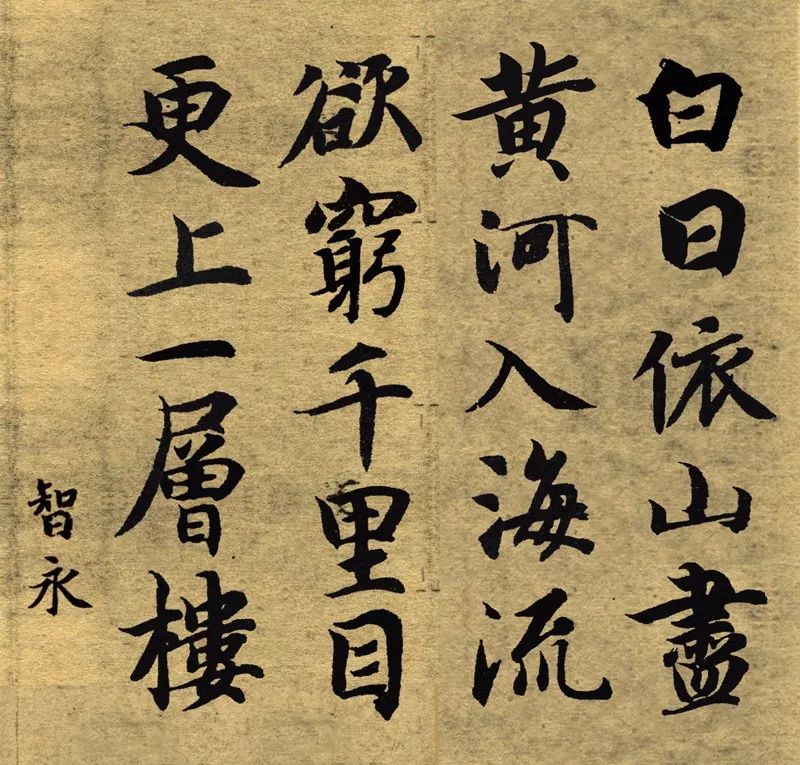 白日依山盡
黃河入海流
欲窮千里目
更上一層樓
智永